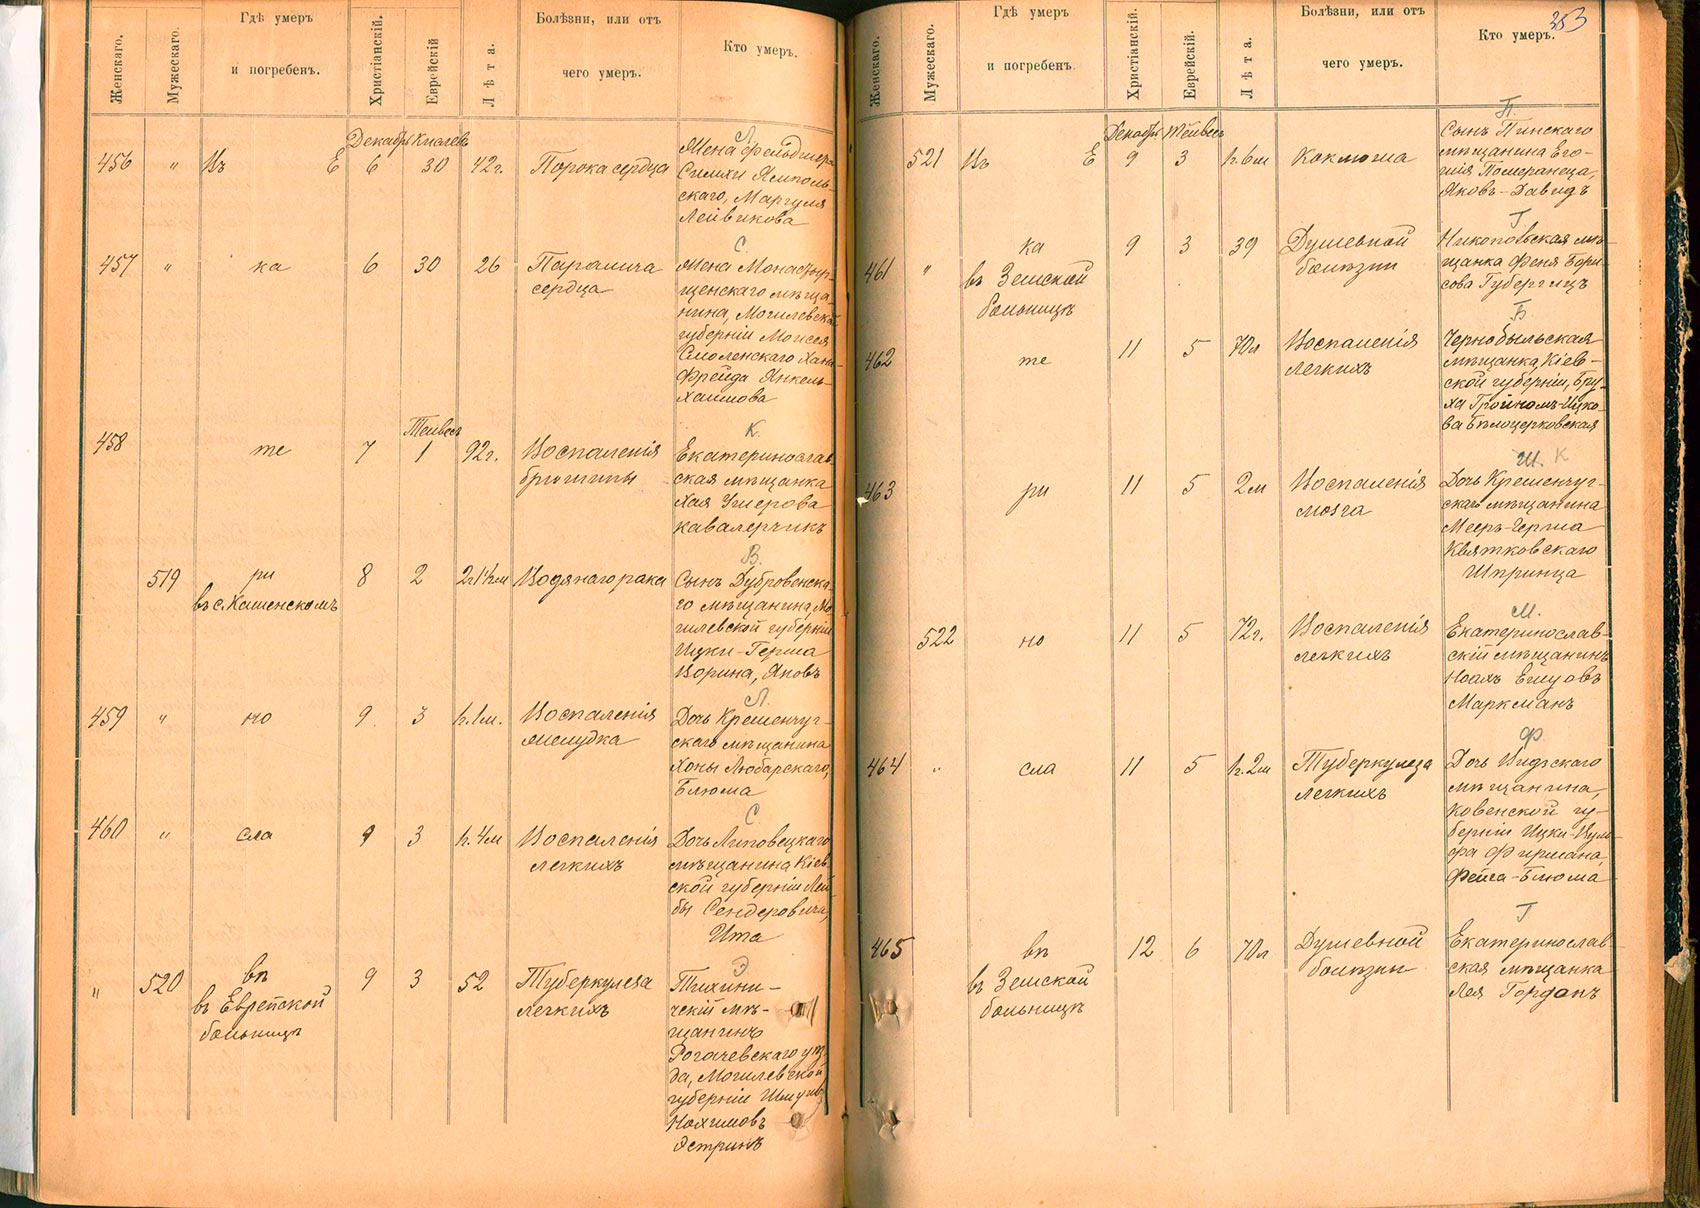 Женскаго.
Мужескаго.
Гдѣ умеръ
и погребенъ.
Христіанскій.
Еврейскій
Лѣта.
Болѣзни, или отъ
чего умеръ.
Кто умеръ.
Декабрь Кислевъ
456 " Въ Е 6 30 42 г. Порока сердца
Л
Жена фельдшера
Симхи Ямполь-
скаго, Маргуля
Лейвикова
457 " ка 6 30 26 Паралича
сердца
С.
Жена Монастыр-
щенскаго мѣща-
нина, Могилевской
губерніи Моисея
Смоленскаго Хана-
Фрейда Янкель-
Хаимова
Тейвесъ
458 те 7 1 92 г. Воспаленія
брюшины
К.
Екатеринослав-
ская мѣщанка
Хая Ушерова
Кавалерчикъ
519 ри
въ с. Каменскомъ
8 2 2г1½м Водянаго рака
В.
Сынъ Дубровенска-
го мѣщанина, Мо-
гилевской губерніи
Ицки-Герша
Ворина, Яковъ
459 " но 9 3 1г.1м. Воспаленія
желудка
Л.
Дочь Кременчуг-
скаго мѣщанина
Хоны Любарскаго,
Блюма
460 " сла 9 3 1г.4м Воспаленія
легкихъ
С
Дочь Липовецкаго
мѣщанина, Кіев-
ской губерніи Лей-
бы Сендеровича,
Ита
" 520 въ
въ Еврейской
больницѣ
9 3 52 Туберкулеза
легкихъ
Э
Тихини-
ческій мѣ-
щанинъ
Рогачевскаго уѣз-
да, Могилевской
губерніи Шмуилъ
Нохимовъ
Эстринъ
353
Женскаго.
Мужескаго.
Гдѣ умеръ
и погребенъ
Христіанскій.
Еврейскій.
Лѣта.
Болѣзни, или отъ
чего умеръ.
Кто умеръ.
Декабрь Тейвесъ
521 Въ Е 9 3 1г.6м Коклюша
П.
Сынъ Пинскаго
мѣщанина Его-
шія Померанеца,
Яковъ-Давидъ
461 " ка
въ Земской
больницѣ
9 3 39 Душевной
болѣзни
Г
Никопольская мѣ-
щанка Феня Бори-
сова Губергицъ
462 те 11 5 70л Воспаленія
легкихъ
Б
Чернобыльская
мѣщанка, Кіев-
ской губерніи, Бру-
ха Гройномъ-Ицко-
ва Бѣлоцерковская
463 ри 11 5 2м Воспаленія
мозга
Ш. К
Дочь Кременчуг-
скаго мѣщанина
Мееръ-Герша
Квятковскаго
Шпринца
522 но 11 5 72г. Воспаленія
легкихъ
М.
Екатеринослав-
скій мѣщанинъ
Ноахъ Ешуовъ
Маркманъ
464 " сла 11 5 1г.2м Туберкулеза
легкихъ
Ф
Дочь Видзскаго
мѣщанина,
Ковенской гу-
берніи Ицки-Вуль-
фа Фирмана,
Фейга-Блюма
465 въ
въ Земской
больницѣ
12 6 70л Душевной
болѣзни
Г
Екатеринослав-
ская мѣщанка
Лея Гордонъ